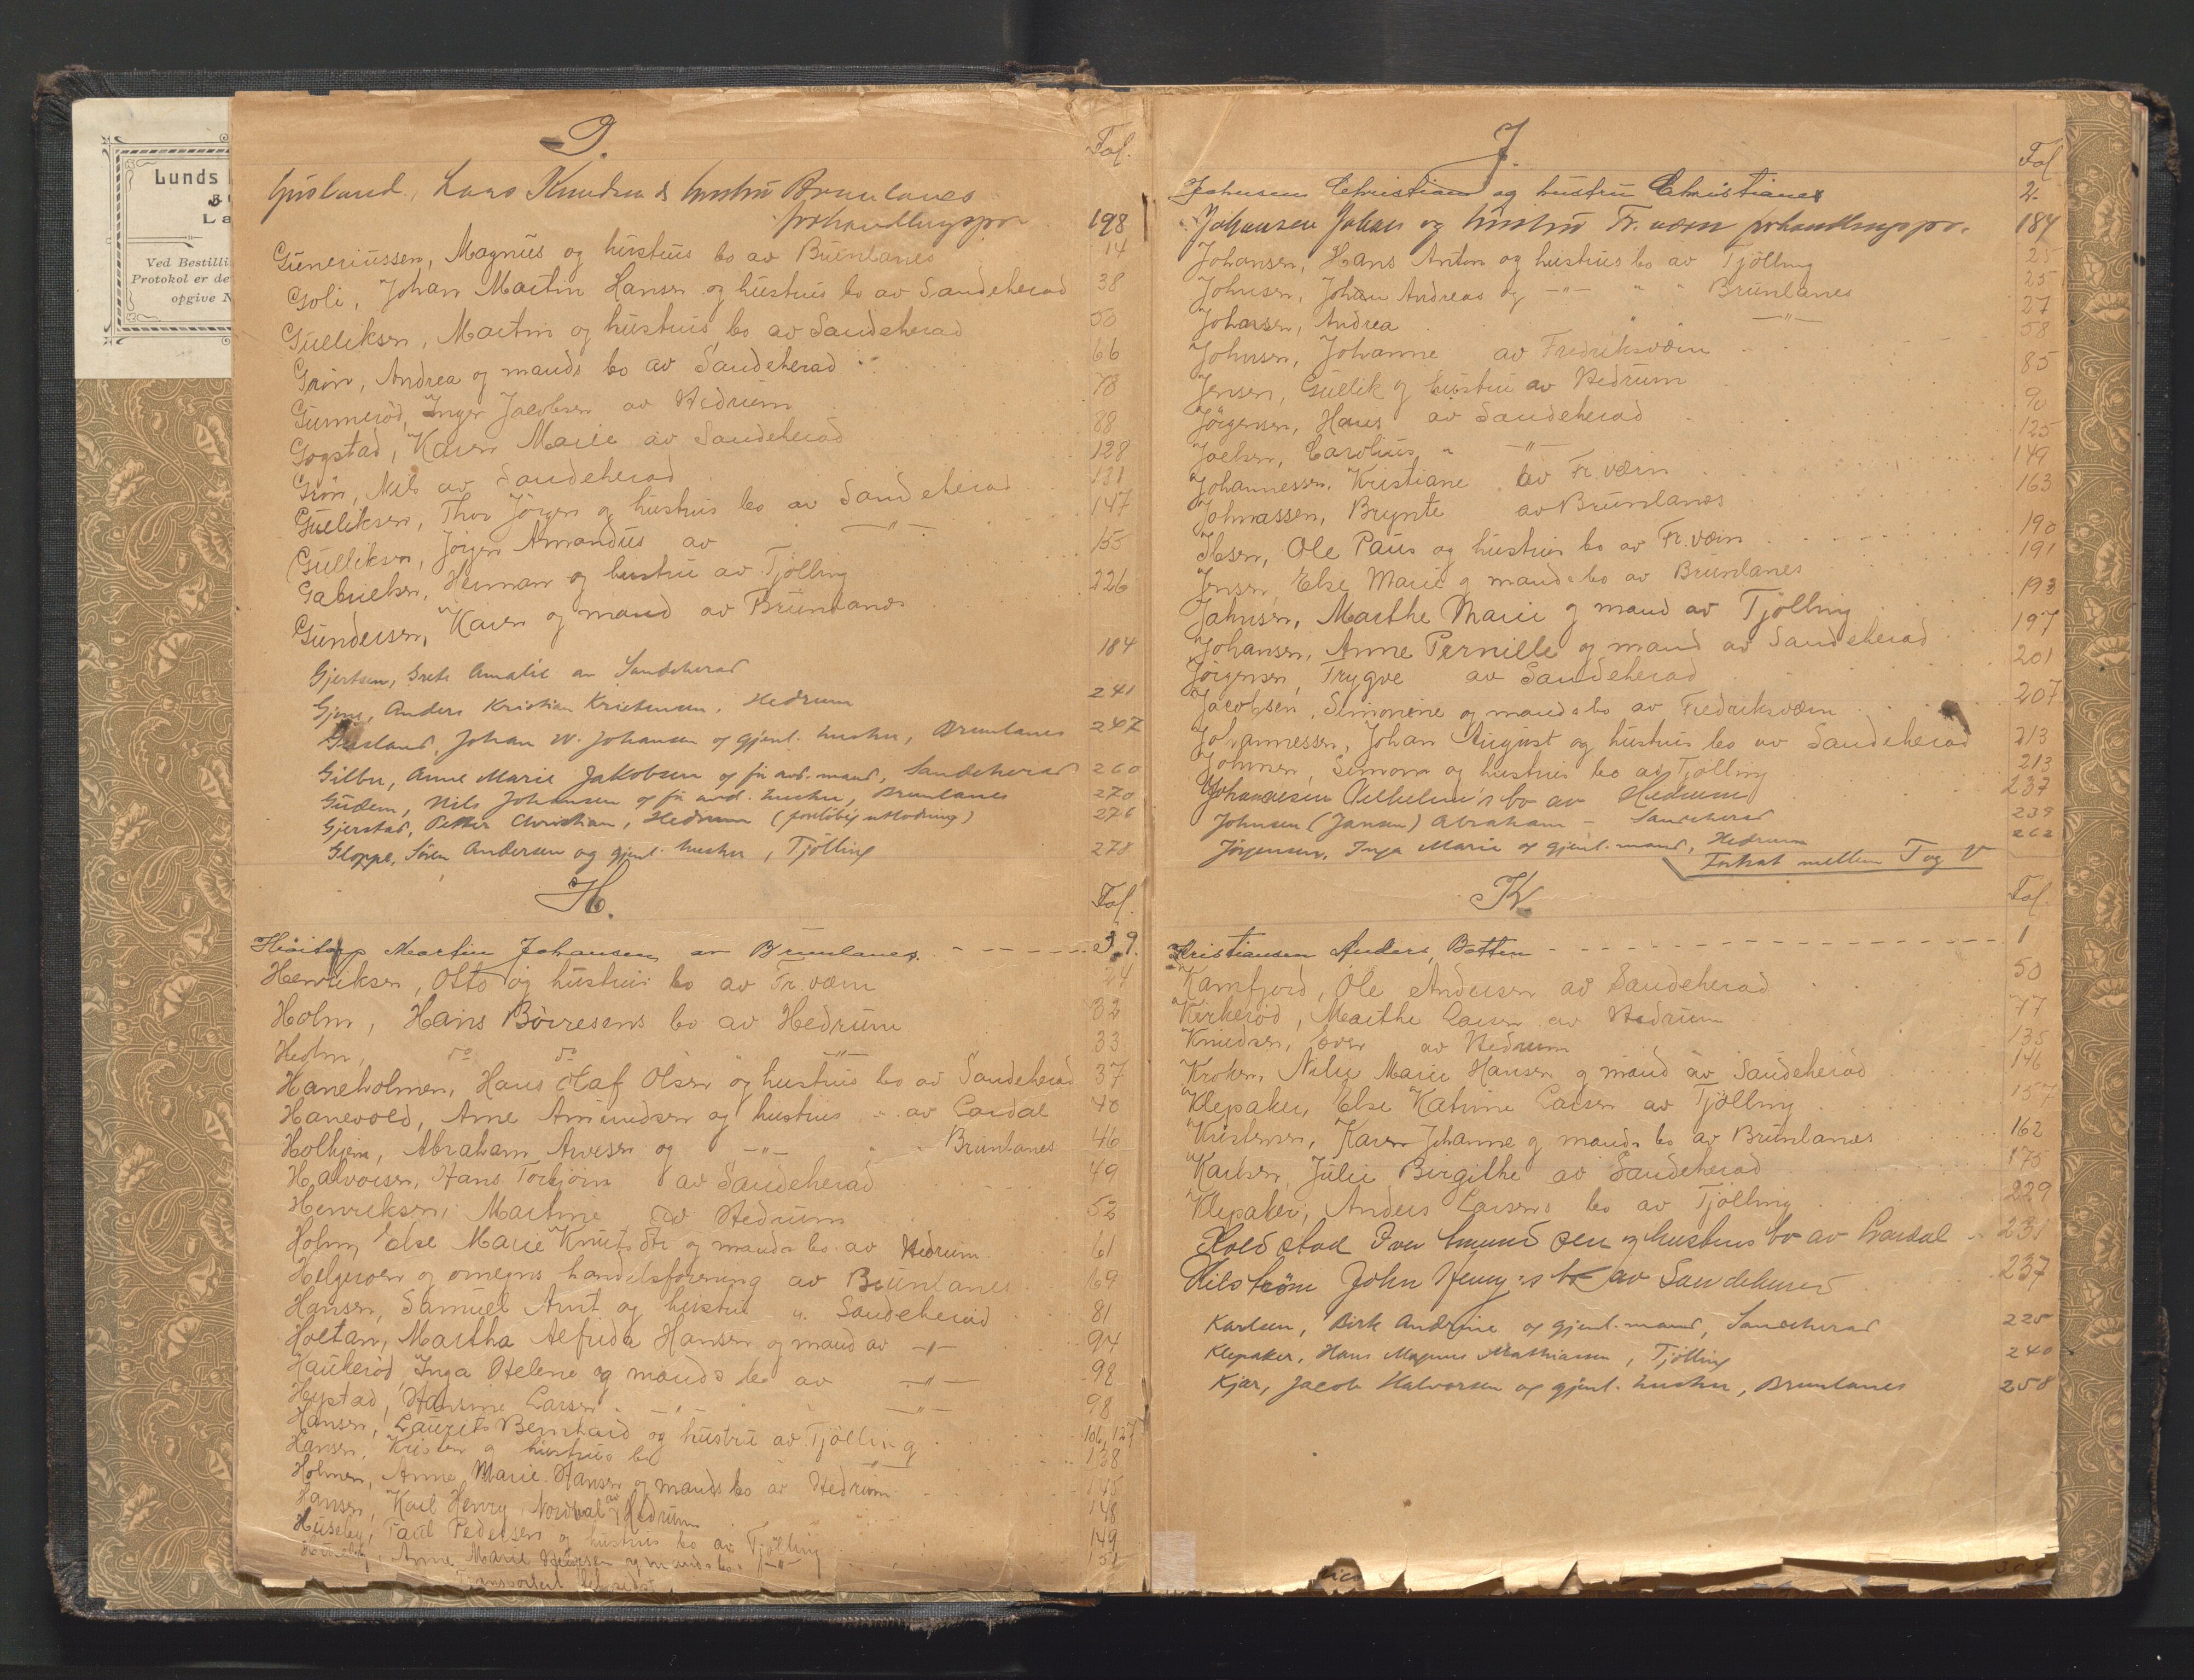 Lunds
La
Ved Bestilli
Protokol er de
opgive N
G.
Fol.
Gusland, Lars Knudsen & hustru Brunlanes
forhandlingspr 198
Guneriussen, Magnus og hustrus bo av Brunlanes 14
Goli, Johan Martin Hansen og hustrus bo av Sandeherad 38
Gulliksen, Martin og hustrus bo av Sandeherad 53
Grøn, Andrea og mands bo av Sandeherad 66
Gunnerød, Inger Jacobsen av Hedrum 78
Gogstad, Karen Marie av Sandeherad 88
Grøn, Nils av Sandeherad 128
Gulliksen, Thor Jörgen og hustrus bo av Sandeherad 131
Gulliksen, Jörgen Amandus av -"- 147
Gabrielsen, Herman og hustru av Tjölling 155
Gundersen, Karen og mand av Brunlanes 226
Gjertsen, Grete Amalie av Sandeherad 184
Gjone, Anders Kristian Kristensen, Hedrum 241
Gusland, Johan W. Johansen og gjenl. hustru, Brunlanes 247
Gilbu, Anne Marie Jakobsen og før avd. mand, Sandeherad 260
Gudem, Nils Johansen og før avd. hustru, Brunlanes 270
Gjerstad, Petter Christian, Hedrum (foreløbig utlodning) 276
Gloppe, Sören Andersen og gjenl. hustru, Tjölling 278
H.
Fol.
Høitorp Martin Johansen av Brunlanes 39.
Henriksen, Otto og hustrus bo av Fr.værn 24
Holm, Hans Börresens bo av Hedrum 32
Holm, do do -"- 33
Haneholmen, Hans Olaf Olsen og hustrus bo av Sandeherad 37
Hanevold, Arne Amundsen og hustrus " av Lardal 40
Holhjem, Abraham Arvesen og -"- " " Brunlanes 46
Halvorsen, Hans Torbjörn av Sandeherad 49
Henriksen, Martine av Hedrum 52
Holm, Else Marie Knutsdtr og mands bo av Hedrum 61
Helgeroen og omegns handelsforening av Brunlanes 69
Hansen, Samuel Arnt og hustru " Sandeherad 81
Holtan, Martha Alfrida Hansen og mand av -"- 94
Haukerød, Inga Helene og mands bo av -"- 92
Hystad, Hansine Larsen -"- -"- 98
Hansen, Laurits Bernhard og hustru av Tjölling 106, 127
Hansen, Kristen og hustrus bo -"- 138
Holmen, Anne Marie Hansen og mands bo av Hedrum 145
Hansen, Karl Henry Nordval av Hedrum 148
Huseby, Paul Pedersen og hustrus bo av Tjölling 149
Anne Marie og mands bo -"-
Transportert
J.
Fol
Johnsen Christian og hustru Christianes 2.
Johansen Johan og hustru Fr. værn forhandlingspr. 184
Johansen, Hans Anton og hustrus bo av Tjölling 25
Johnsen, Johan Andreas og -"- " " Brunlanes 25
Johansen, Andrea " " -"- 27
Johnsen, Johanne av Fredriksværn 58
Jensen, Gullik og hustru av Hedrum 85
Jörgensen, Hans av Sandeherad 90
Joelsen, Carolius " -"- 125
Johannessen, Kristiane av Fr.værn 149
Johnassen, Brynte av Brunlanes 163
Ibsen, Ole Paus og hustrus bo av Fr.værn 190
Jensen, Else Marie og mands bo av Brunlanes 191
Jahnsen, Marthe Marie og mand av Tjölling 193
Johansen, Anne Pernille og mand av Sandeherad 197
Jörgensen, Trygve av Sandeherad 201
Jacobsen, Simonine og mands bo av Fredriksværn 207
Johannessen, Johan August og hustrus bo av Sandeherad 213
Johnsen, Simon og hustrus bo av Tjölling 213
Johannesen Vilhelm's bo av Hedrum 237
Johnsen (Jansen) Abraham - Sandeherad 239
Jörgensen, Inga Marie og gjenl. mand, Hedrum 262
Fortsat mellem T og V
K.
Fol.
Kristiansen Anders, Botten 1
Kamfjord, Ole Andersen av Sandeherad 50
Kirkerød, Marthe Larsen av Hedrum 77
Knudsen, Iver av Hedrum 135
Kroken, Nelly Marie Hansen og mand av Sandeherad 146
Klepaker, Else Katrine Larsen av Tjölling 157
Kristensen, Karen Johanne og mands bo av Brunlanes 162
Karlsen, Julie Birgithe av Sandeherad 175
Klepaker, Anders Larsens bo av Tjölling 229
Koldstad Iver Amund Olsen og hustrus bo av Lardal 231
Kilström John Henry's bo av Sandeherad 237
Karlsen, Birte Andrine og gjenl. mand, Sandeherad 225
Klepaker, Hans Magnus Mathiassen, Tjölling 240
Kjær, Jacob Halvorsen og gjenl. hustru, Brunlanes 258